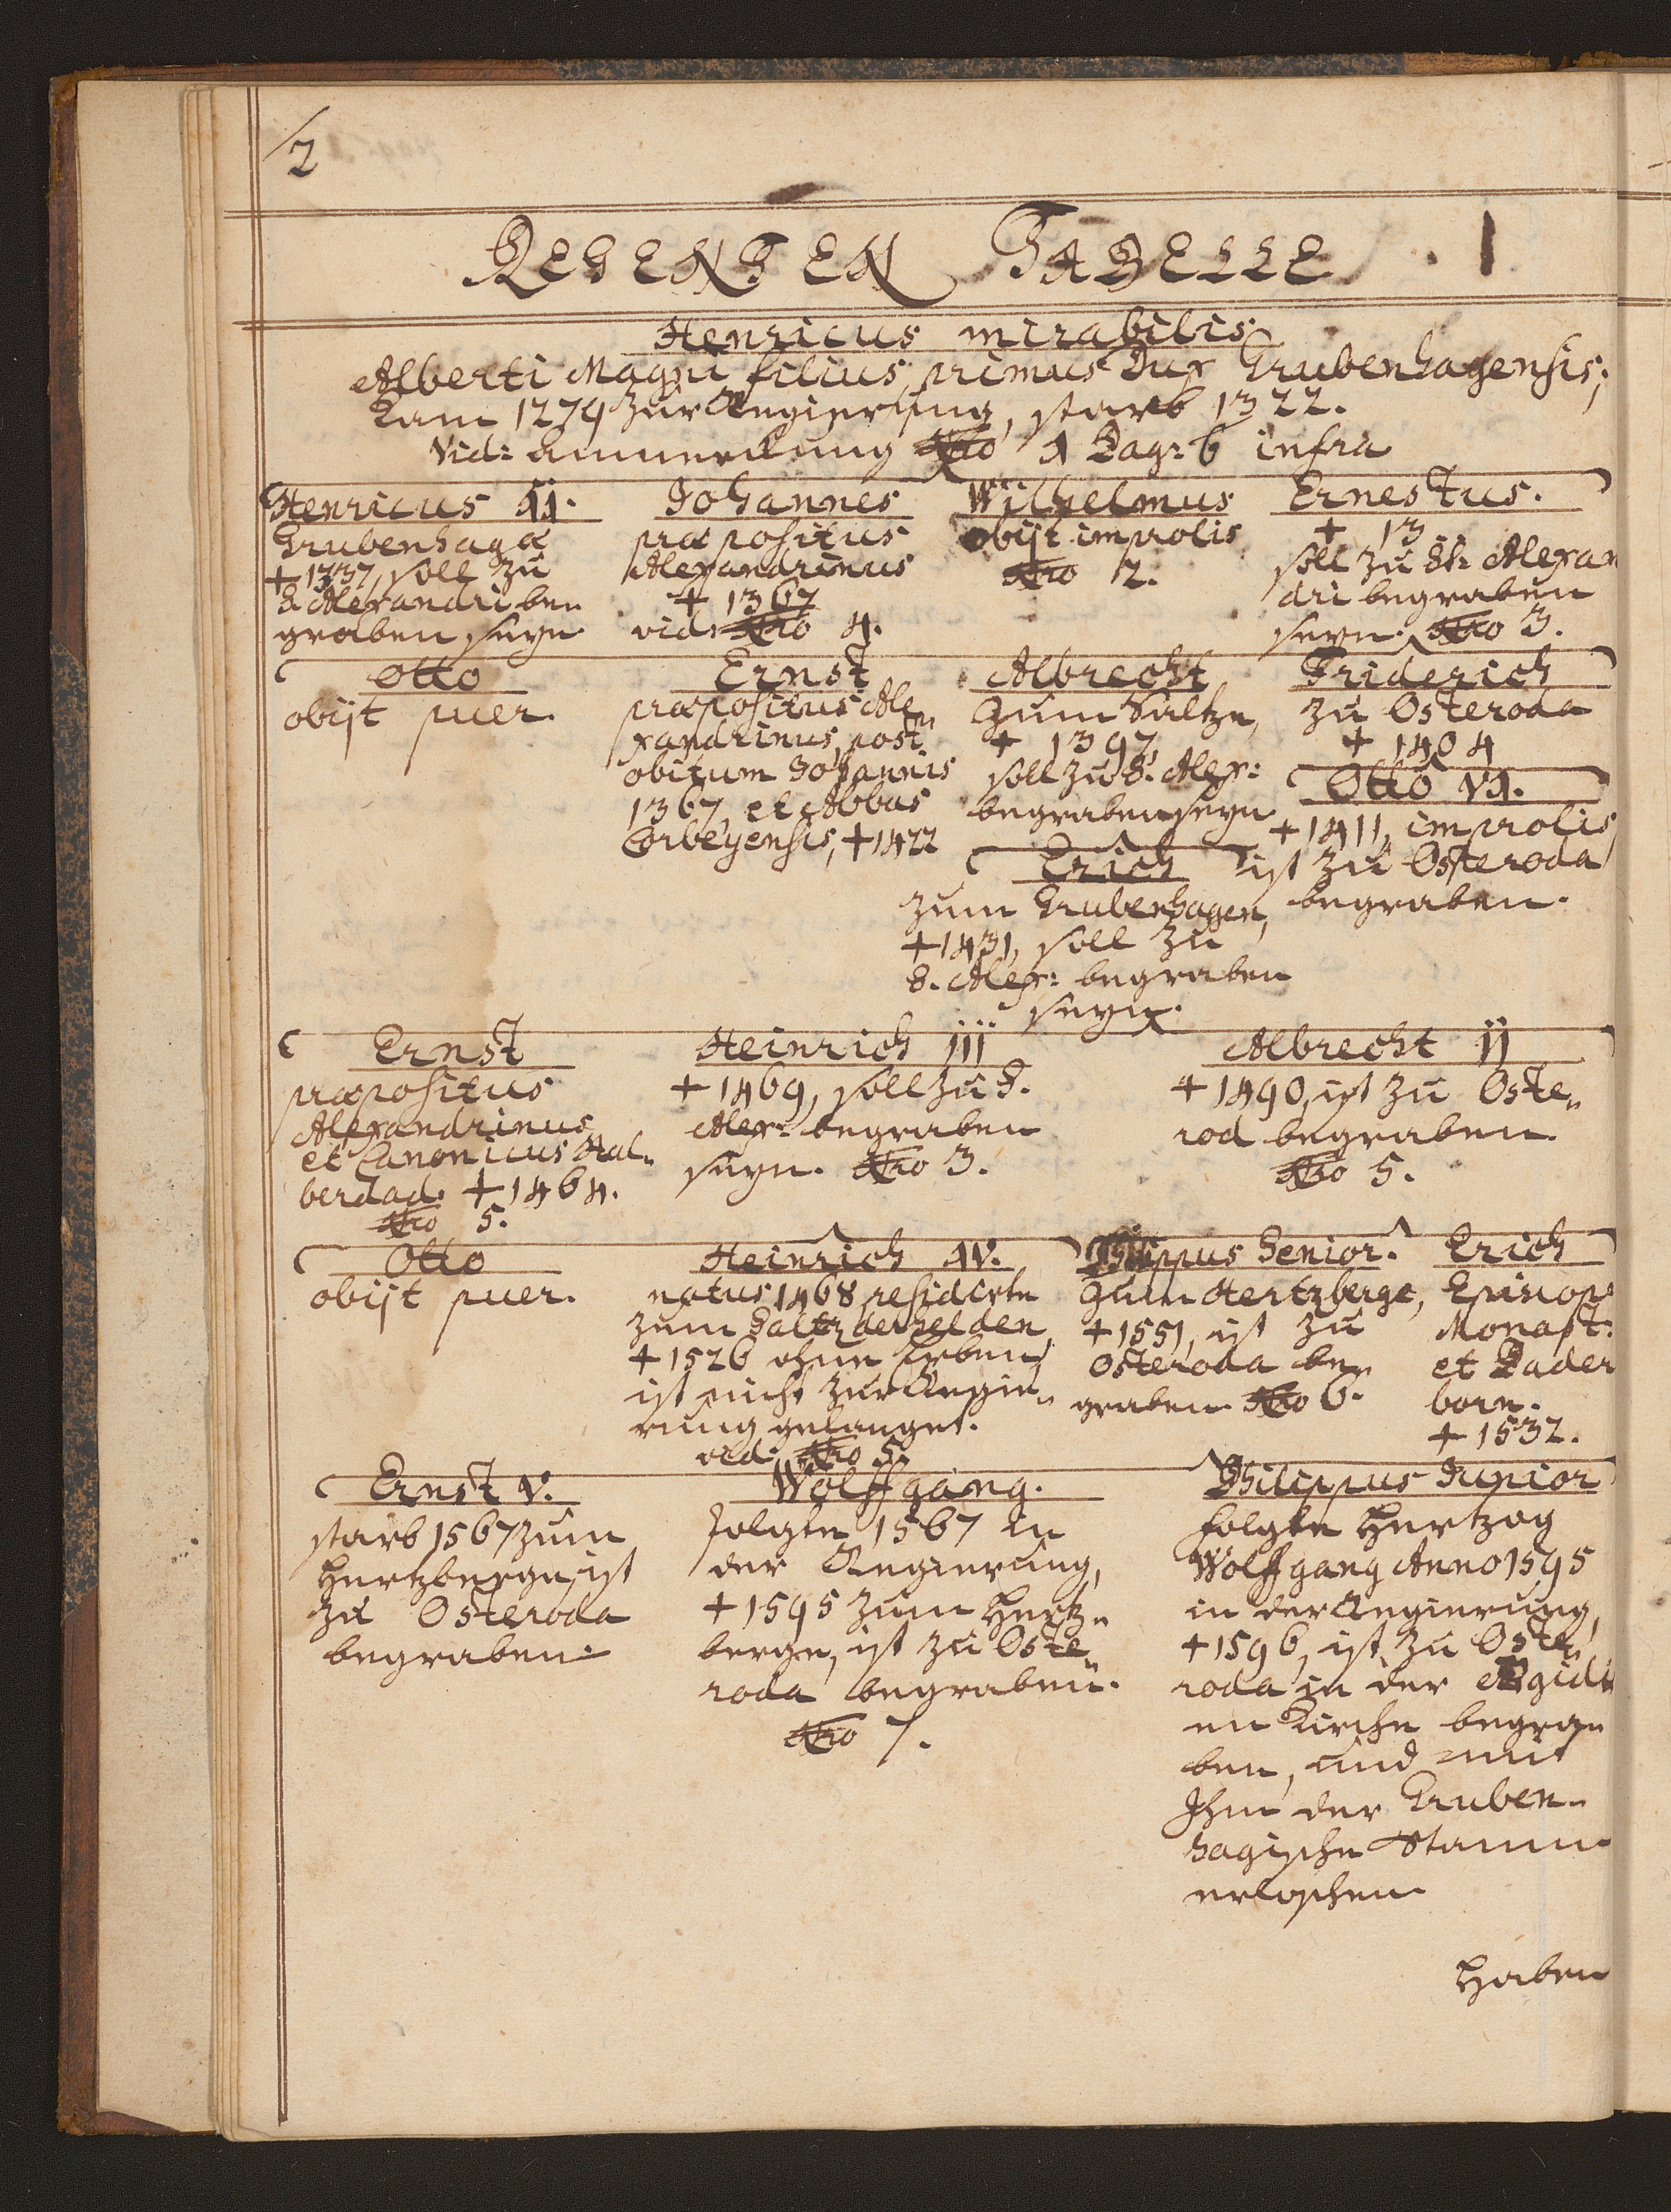 2
REGENTEN TABELLE. 1
Henricus mirabilis
Alberti Magni filius, primus Dux Grubenhagensis;
Kam 1279 zur Regierung, starb 1322.
Vid: Anmerckung Nro 1 Pag: 6 infra
Henricus II.
Grubenhagæ
+ 1337, soll zu
S. Alexandri be„
graben seyn
Johannes
præpositus
Alexandrinus
+ 1367
vid: Nro 4.
Wilhelmus
obijt improlis
Nro 2.
Ernestus.
+ 13
soll zu St: Alexan
dri begraben
seyn. Nro 3.
Otto
obijt puer.
Ernst
præpositus Ale„
xandrinus, post
obitum Johannis
1367, et Abbas
Corbeyensis, + 1422
Albrecht
Zum Saltze,
+ 1397,
soll zu S. Alex:
begraben seyn
Friderich
zu Osteroda
+ 1404
Otto VI.
+ 1411, improlis
ist zu Osteroda
begraben.
Erich
zum Grubenhagen,
+ 1431, soll zu
S. Alex: begraben
seyn.
Ernst
præpositus
Alexandrinus
et Canonicus Hal„
berdad. + 1464.
Nro 5.
Heinrich iii
+ 1469, soll zu S.
Alex: begraben
seyn. Nro 3.
Albrecht ii
+ 1490, ist zu Oste„
rod begraben.
Nro 5.
Otto
obijt puer.
Heinrich IV.
natus 1468 residirte
zum Saltzderhelden,
+ 1526 ohne Erben,
ist nicht zur Regie„
rung gelanget.
vid: Nro 5.
Philippus Senior.
Zum Hertzberge,
+ 1551, ist zu
Osteroda be„
graben. Nro 6.
Erich
Episcop
Monast:
et Pader
born.
+ 1532.
Ernst V.
starb 1567 zum
Hertzberge, ist
zu Osteroda
begraben.
Wolffgang.
folgte 1567 in
der Regierung,
+ 1595 zum Hertz„
berge, ist zu Oste„
roda begraben.
Nro 7.
Philippus Junior
folgte Hertzog
Wolffgang Anno 1595
in der Regierung,
+ 1596, ist zu Oste„
roda in der Ægidi
en Kirche begra„
ben, und mit
Ihm der Gruben„
hagische Stamm
erloschen
Haben